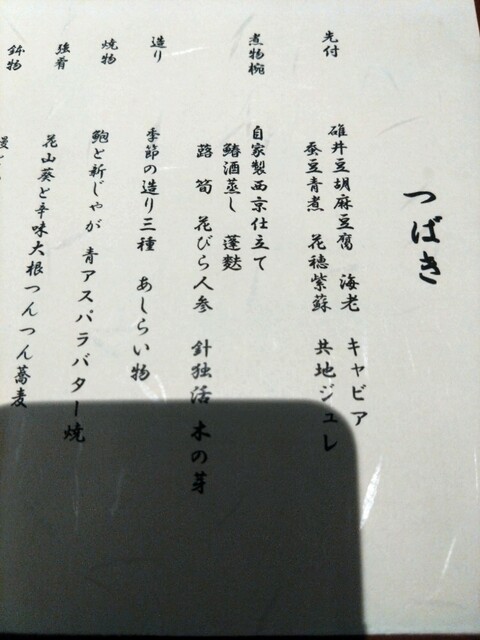 つばき
先付
碓井豆胡麻豆腐 海老 キャビア
蚕豆青煮 花穂紫蘇 共地ジュレ
煮物椀
自家製西京仕立て
鰆酒蒸し 蓬麩
蕗 筍 花びら人参 針独活 木の芽
造り
季節の造り三種 あしらい物
焼物
鮑と新じゃが 青アスパラバター焼
強肴
花山葵と辛味大根つんつん蕎麦
鉢物